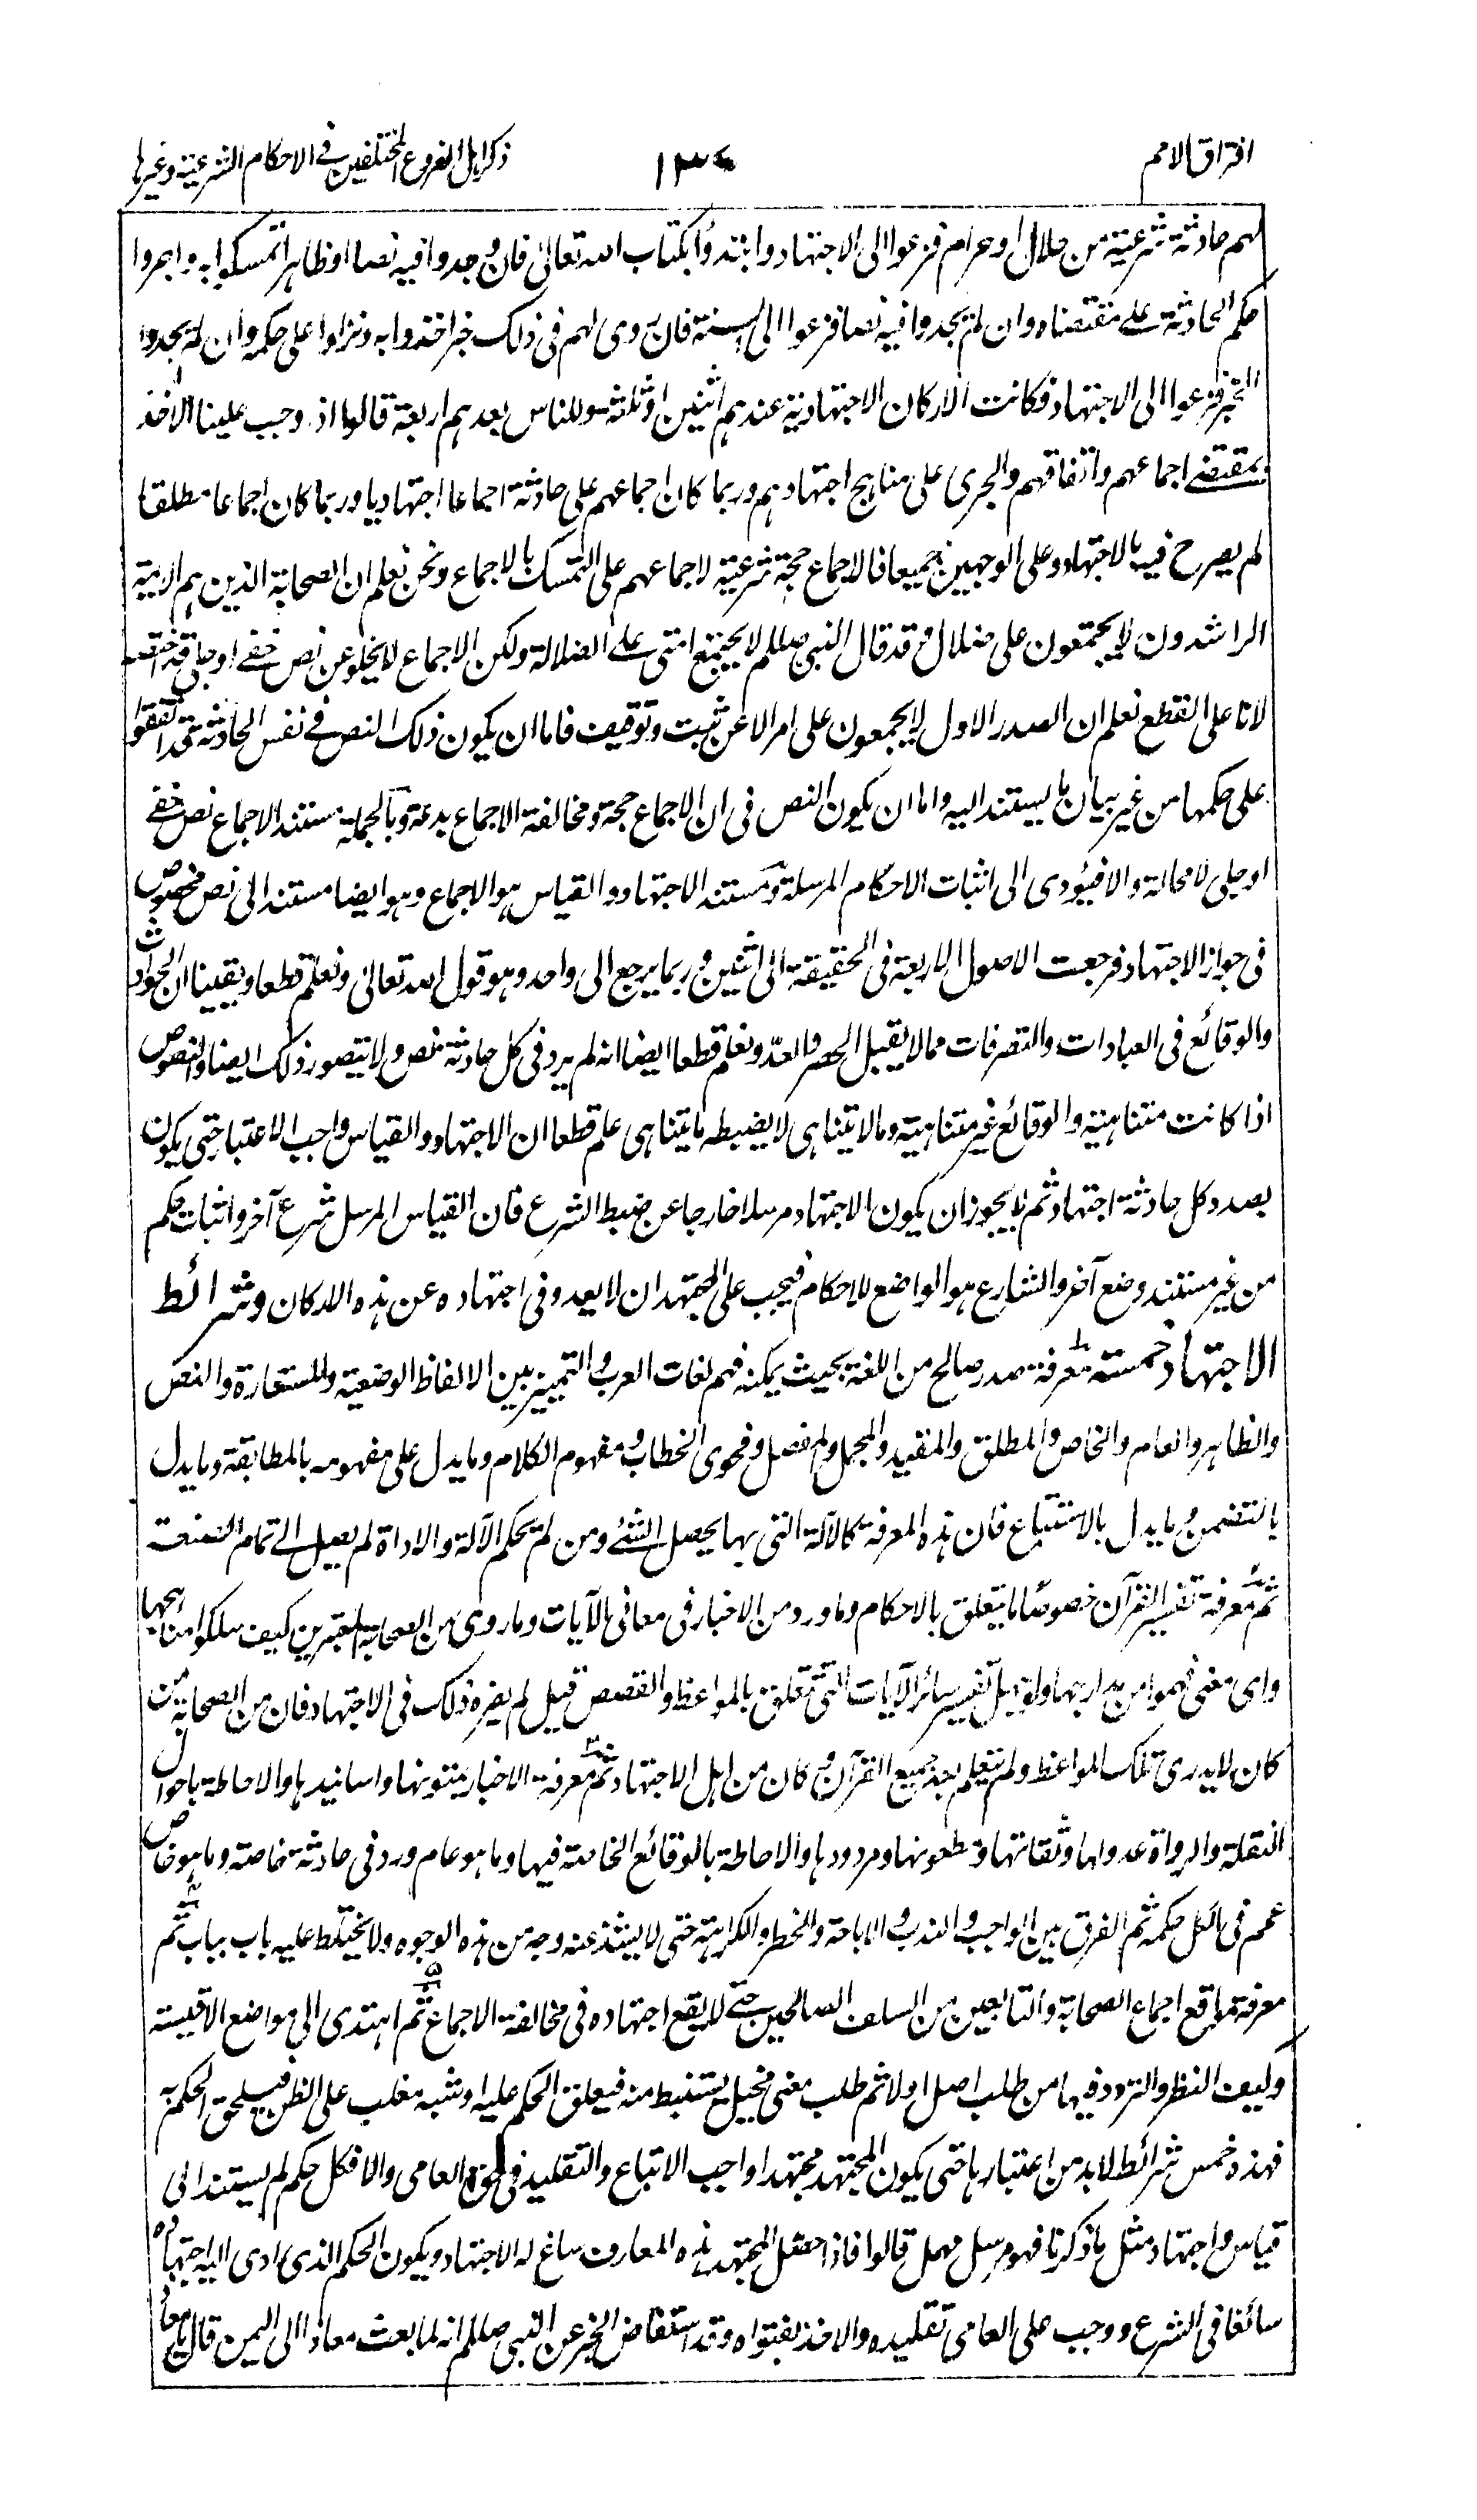 افتراق الامم
ذكر اہل الفروع المختلفين فى الاحكام الشرعية وغيرہا
لہم حادثة شرعية من حلال او حرام فزعوا الى الاجتہاد وابتدؤا بكتاب اللہ تعالى فان وجدوا فيہ نصا او ظاہرا تمسكوا بہ واجروا
حكم الحادثة على مقتضاہ وان لم يجدوا فيہ نصا فزعوا الى السنة فان روى لہم فى ذلك خبر اخذوا بہ ونزلوا على حكمہ وان لم يجدوا
الخبر فزعوا الى الاجتہاد فكانت الاركان الاجتہادية عندہم اثنين او ثلثة وللناس بعدہم اربعة قالوا اذ وجب علينا الاخذ
بمقتضى اجماعہم واتفاقہم والجرى على مناہج اجتہادہم وربما كان اجماعہم على حادثة اجماعا اجتہاديا وربما كان اجماعا مطلقا
لم يصرح فيہ بالاجتہاد وعلى الوجہين جميعا فالاجماع حجة شرعية لاجماعہم على التمسك بالاجماع ونحن نعلم ان الصحابة الذين ہم الايمة
الراشدون لا يجتمعون على ضلال وقد قال النبى صللم لا يجتمع امتى على الضلالة ولكن الاجماع لا يخلو عن نص خفى او جلى قد اختصہ
لانا على القطع نعلم ان الصدر الاول لا يجمعون على امر الا عن ثبت وتوقيف فاما ان يكون ذلك النص فى نفس الحادثة قد اتفقوا
على حكمہا من غير بيان ما يستند اليہ واما ان يكون النص فى ان الاجماع حجة ومخالفة الاجماع بدعة وبالجملة مستند الاجماع نص خفى
او جلى لا محالة والا فيؤدى الى اثبات الاحكام المرسلة ومستند الاجتہاد والقياس ہو الاجماع وہو ايضا مستند الى نص مخصوص
فى جواز الاجتہاد فرجعت الاصول الاربعة فى الحقيقة الى اثنين وربما يرجع الى واحد وہو قول اللہ تعالى ونعلم قطعا ويقينا ان الحوادث
والوقائع فى العبادات والتصرفات مما لا يقبل الحصر والعدّ ونعلم قطعا ايضا انہ لم يرد فى كل حادثة نص ولا يتصور ذلك ايضا والنصوص
اذا كانت متناہية والوقائع غير متناہية وما لا يتناہى لا يضبطہ ما يتناہى علم قطعا ان الاجتہاد والقياس واجب الاعتبار حتى يكون
بصدد كل حادثة اجتہاد ثم لا يجوز ان يكون الاجتہاد مرسلا خارجا عن ضبط الشرع فان القياس المرسل شرع آخر واثبات حكم
من غير مستند وضع آخر والشارع ہو الواضع للاحكام فيجب على المجتہد ان لا يعدو فى اجتہادہ عن ہذہ الاركان وشرائط
الاجتہاد خمسة معرفة صدر صالح من اللغة بحيث يمكنہ فہم لغات العرب والتمييز بين الالفاظ الوضعية والمستعارة والنص
والظاہر والعام والخاص والمطلق والمقيد والمجمل والمفصل وفحوى الخطاب ومفہوم الكلام وما يدل على مفہومہ بالمطابقة وما يدل
بالتضمن وما يدل بالاستتباع فان ہذہ المعرفة كالآلة التى بہا يحصل الشئ ومن لم يحكم الآلة والاداة لم يصل الى تمام الصنعة
ثم معرفة تفسير القرآن خصوصًا ما يتعلق بالاحكام وما ورد من الاخبار فى معانى الآيات وما روى من الصحابة المعتبرين كيف سلكوا مناہجہا
واى معنى فہموا من مدارجہا ولو جہل تفسير سائر الآيات التى تتعلق بالمواعظ والقصص قيل لم يضرہ ذلك فى الاجتہاد فان من الصحابة من
كان لا يدرى تلك المواعظ ولم يتعلم بعد جميع القرآن وكان من اہل الاجتہاد ثم معرفة الاخبار بمتونہا واسانيدہا والاحاطة باحوال
النقلة والرواة عدولہا وثقاتہا ومطعونہا ومردودہا والاحاطة بالوقائع الخاصة فيہا وما ہو عام ورد فى حادثة خاصة وما ہو خاص
عمم فى الكل حكمہ ثم الفرق بين الواجب والندب والاباحة والحظر والكراہة حتى لا يشذ عنہ وجہ من ہذہ الوجوہ ولا يختلط عليہ باب بباب ثم
معرفة مواقع اجماع الصحابة والتابعين من السلف الصالحين حتى لا يقع اجتہادہ فى مخالفة الاجماع ثم اہتدى الى مواضع الاقيسة
وكيف النظر والتردد فيہا من طلب اصل اولا ثم طلب معنى مخيل يستنبط منہ فيعلق الحكم عليہ او شبہ مغلب على الظن فيلحق الحكم بہ
فہذہ خمس شرائط لا بد من اعتبارہا حتى يكون المجتہد مجتہدا واجب الاتباع والتقليد فى حق العامى والا فكل حكم لم يستند الى
قياس واجتہاد مثل ما ذكرنا فہو مرسل مہمل قالوا فاذا حصل المجتہد ہذہ المعارف ساغ لہ الاجتہاد ويكون الحكم الذى ادى اليہ اجتہادہ
سائغا فى الشرع ووجب على العامى تقليدہ والاخذ بفتواہ وقد استفاض الخبر عن النبى صللم انہ لما بعث معاذا الى اليمن قال يا معاذ